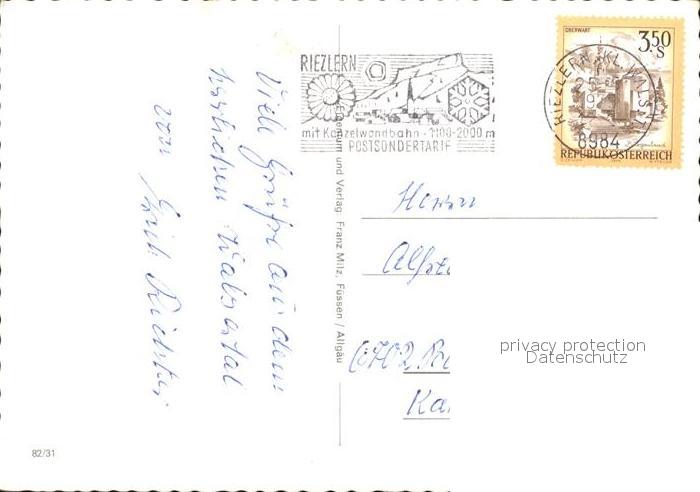 Viele Grüße aus dem
herrlichen Walsertal
von
Erich Richter
RIEZLERN
mit Kanzelwandbahn · 1100-2000 m
POSTSONDERTARIF
OBERWART
3,50
S
RIEZLERN, KL. WALSERT.
8984
REPUBLIK ÖSTERREICH
Eigentum und Verlag Franz Milz, Füssen / Allgäu
Herrn
privacy protection
Datenschutz
82/31